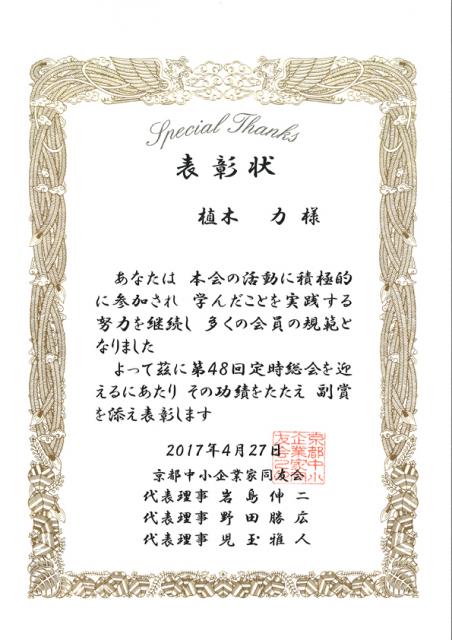 Special Thanks
表彰状
植木 力 様
あなたは 本会の活動に積極的
に参加され 学んだことを実践する
努力を継続し 多くの会員の規範と
なりました
よって茲に第48回定時総会を迎
えるにあたり その功績をたたえ 副賞
を添え表彰します
2017年4月27日
京都中小企業家同友会
代表理事 岩島伸二
代表理事 野田勝広
代表理事 児玉雅人